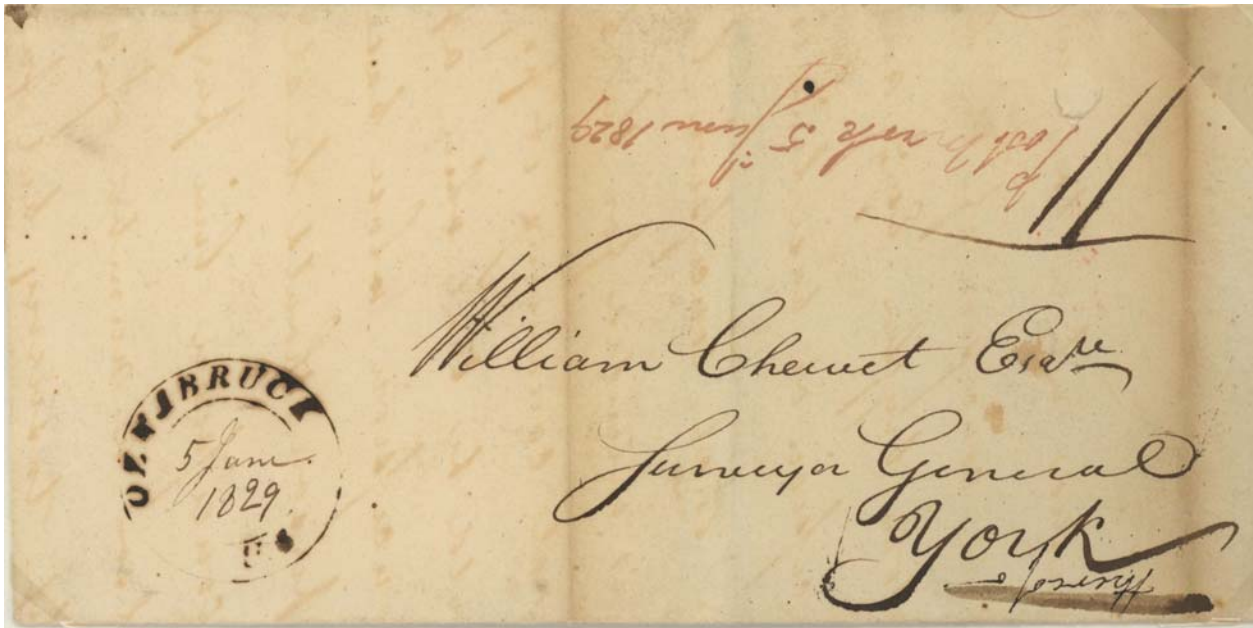 Post mark 5 June 1829
11
William Chewet Esqre
Surveyor General
York
OZNABRUCK
5 June
1829